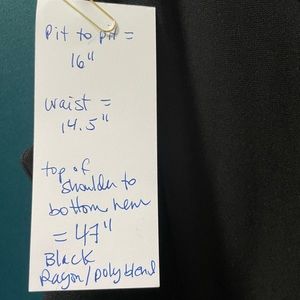 Pit to pit =
16"
waist =
14.5"
top of
shoulder to
bottom hem
= 47"
Black
Rayon/poly blend